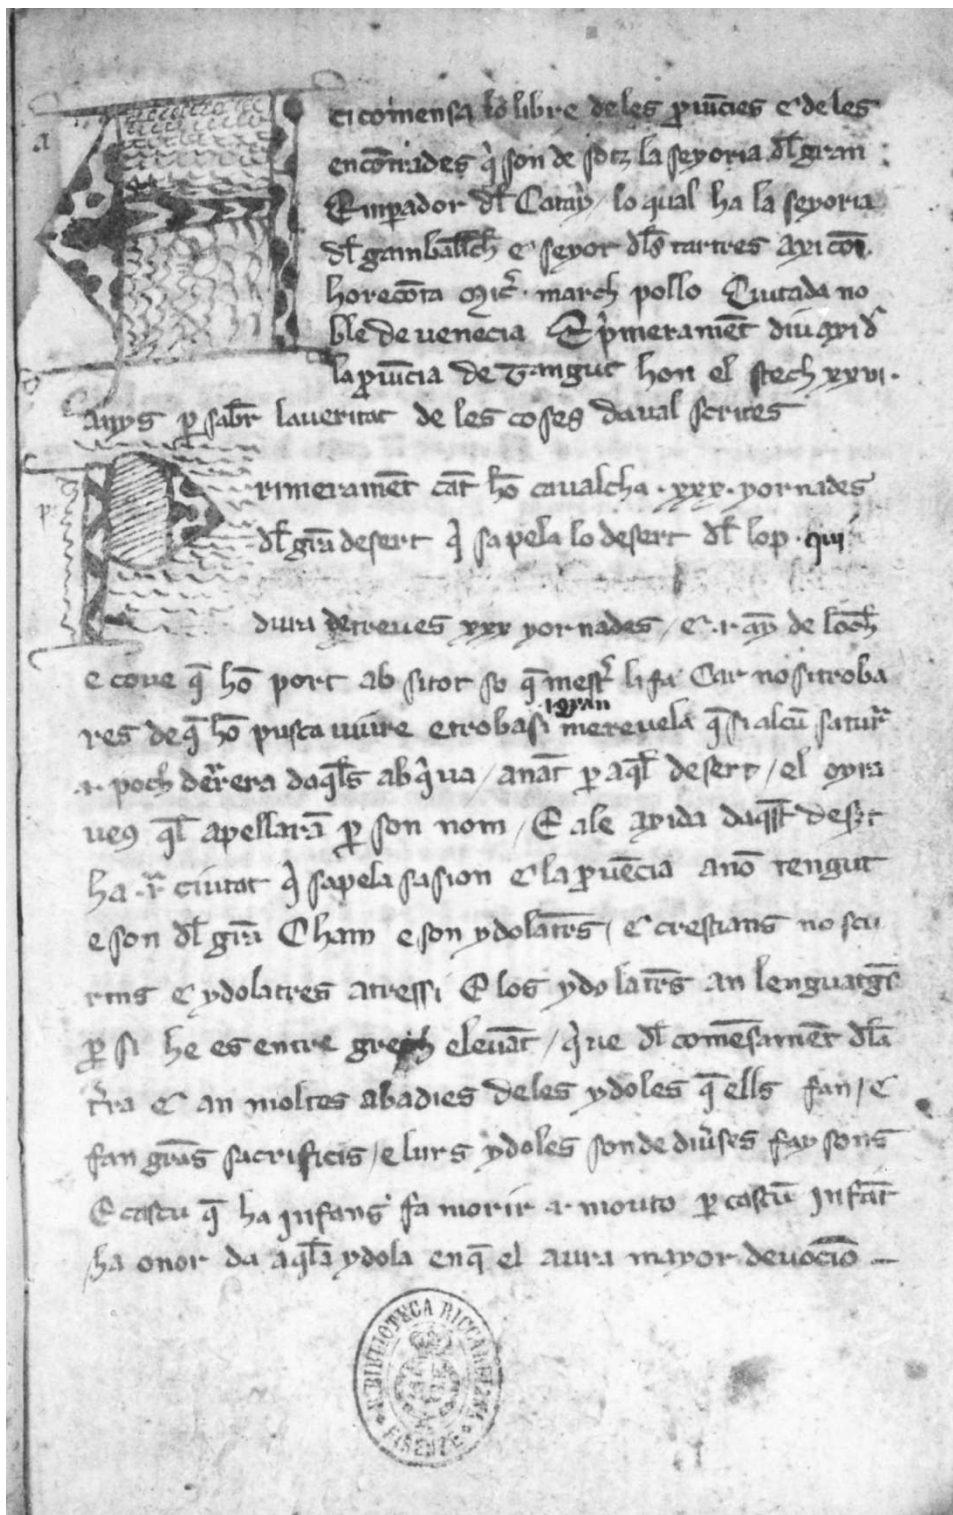 a
ci comensa lo libre de les ꝓuīcies e de les
encōtrades q̄ son de sotz la seyoria dl̄ gran
Emꝑador dl̄ Catay / lo qual ha la seyoria
dl̄ gambalech e seyor dl̄s tartres axi com
horecōta Mic̄ · march pollo Ciutada no
ble de venecia E p̄merament̄ diu axi d̄
la ꝓuīcia de Tangut hon el stech xxvi ·
anys ꝑ sabr̄ la veritat de les coses daual scrites
p
rimerament̄ cāt hō caualcha · xxx · yornades
dl̄ grā desert q̄ sapela lo desert dl̄ lop · qui
dura de treues xxx yornades / e · i · ay de loch
e coue q̄ hō port ab si tot so q̄ mest̄ li fa Car no si troba
res de q̄ hō pusca uiure e troba si
i gran
mereuela q̄ si alcu satur̄a
· i · poch derrera daq̄ls ab q̄ ua / anāt ꝑ aq̄l desert / el oyra
ueus q̄l apellarā ꝑ son nom / E a le axida daq̄st desert
ha · i ᵃ · ciutat q̄ sapela sasion e la ꝓuēcia a nō tengut
e son dl̄ grā Cham e son ydolatrēs / e crestians noscu
rins e ydolatres atressi E los ydolatrēs an lenguatge
ꝑ si he es entre grech e leuāt / q̄ ue dl̄ comēsament̄ dl̄a
t̄ra e an moltes abadies de les ydoles q̄ ells fan / e
fan grās sacrificis / e lurs ydoles son de diūses faysons
E cascu q̄ ha infans fa morir · i · mouto ꝑ cascū infāt
ha onor da aq̄la ydola en q̄ el aura mayor deuocio
R. BIBLIOTECA RICCARDIANA
FIRENZE